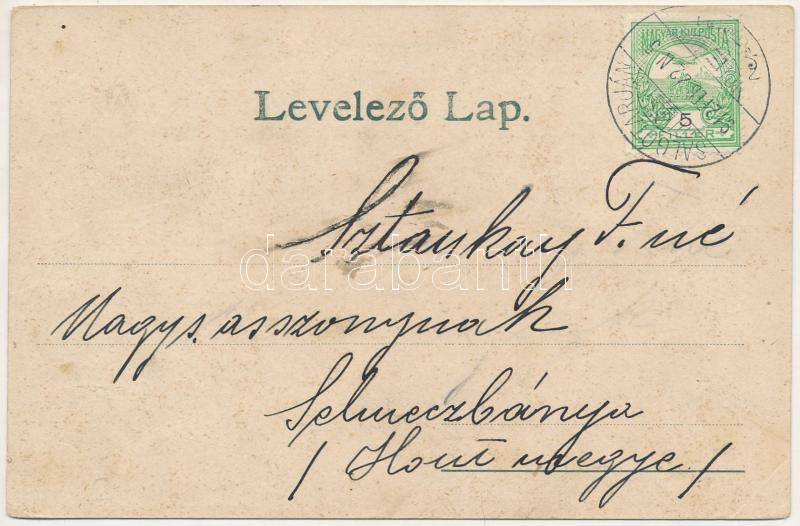 Levelező Lap.
MAGYAR KIR. POSTA
5
FILLÉR
Sztankay F. né
darabanth
Nagys. asszonynak
Selmeczbánya
/ Hont megye /